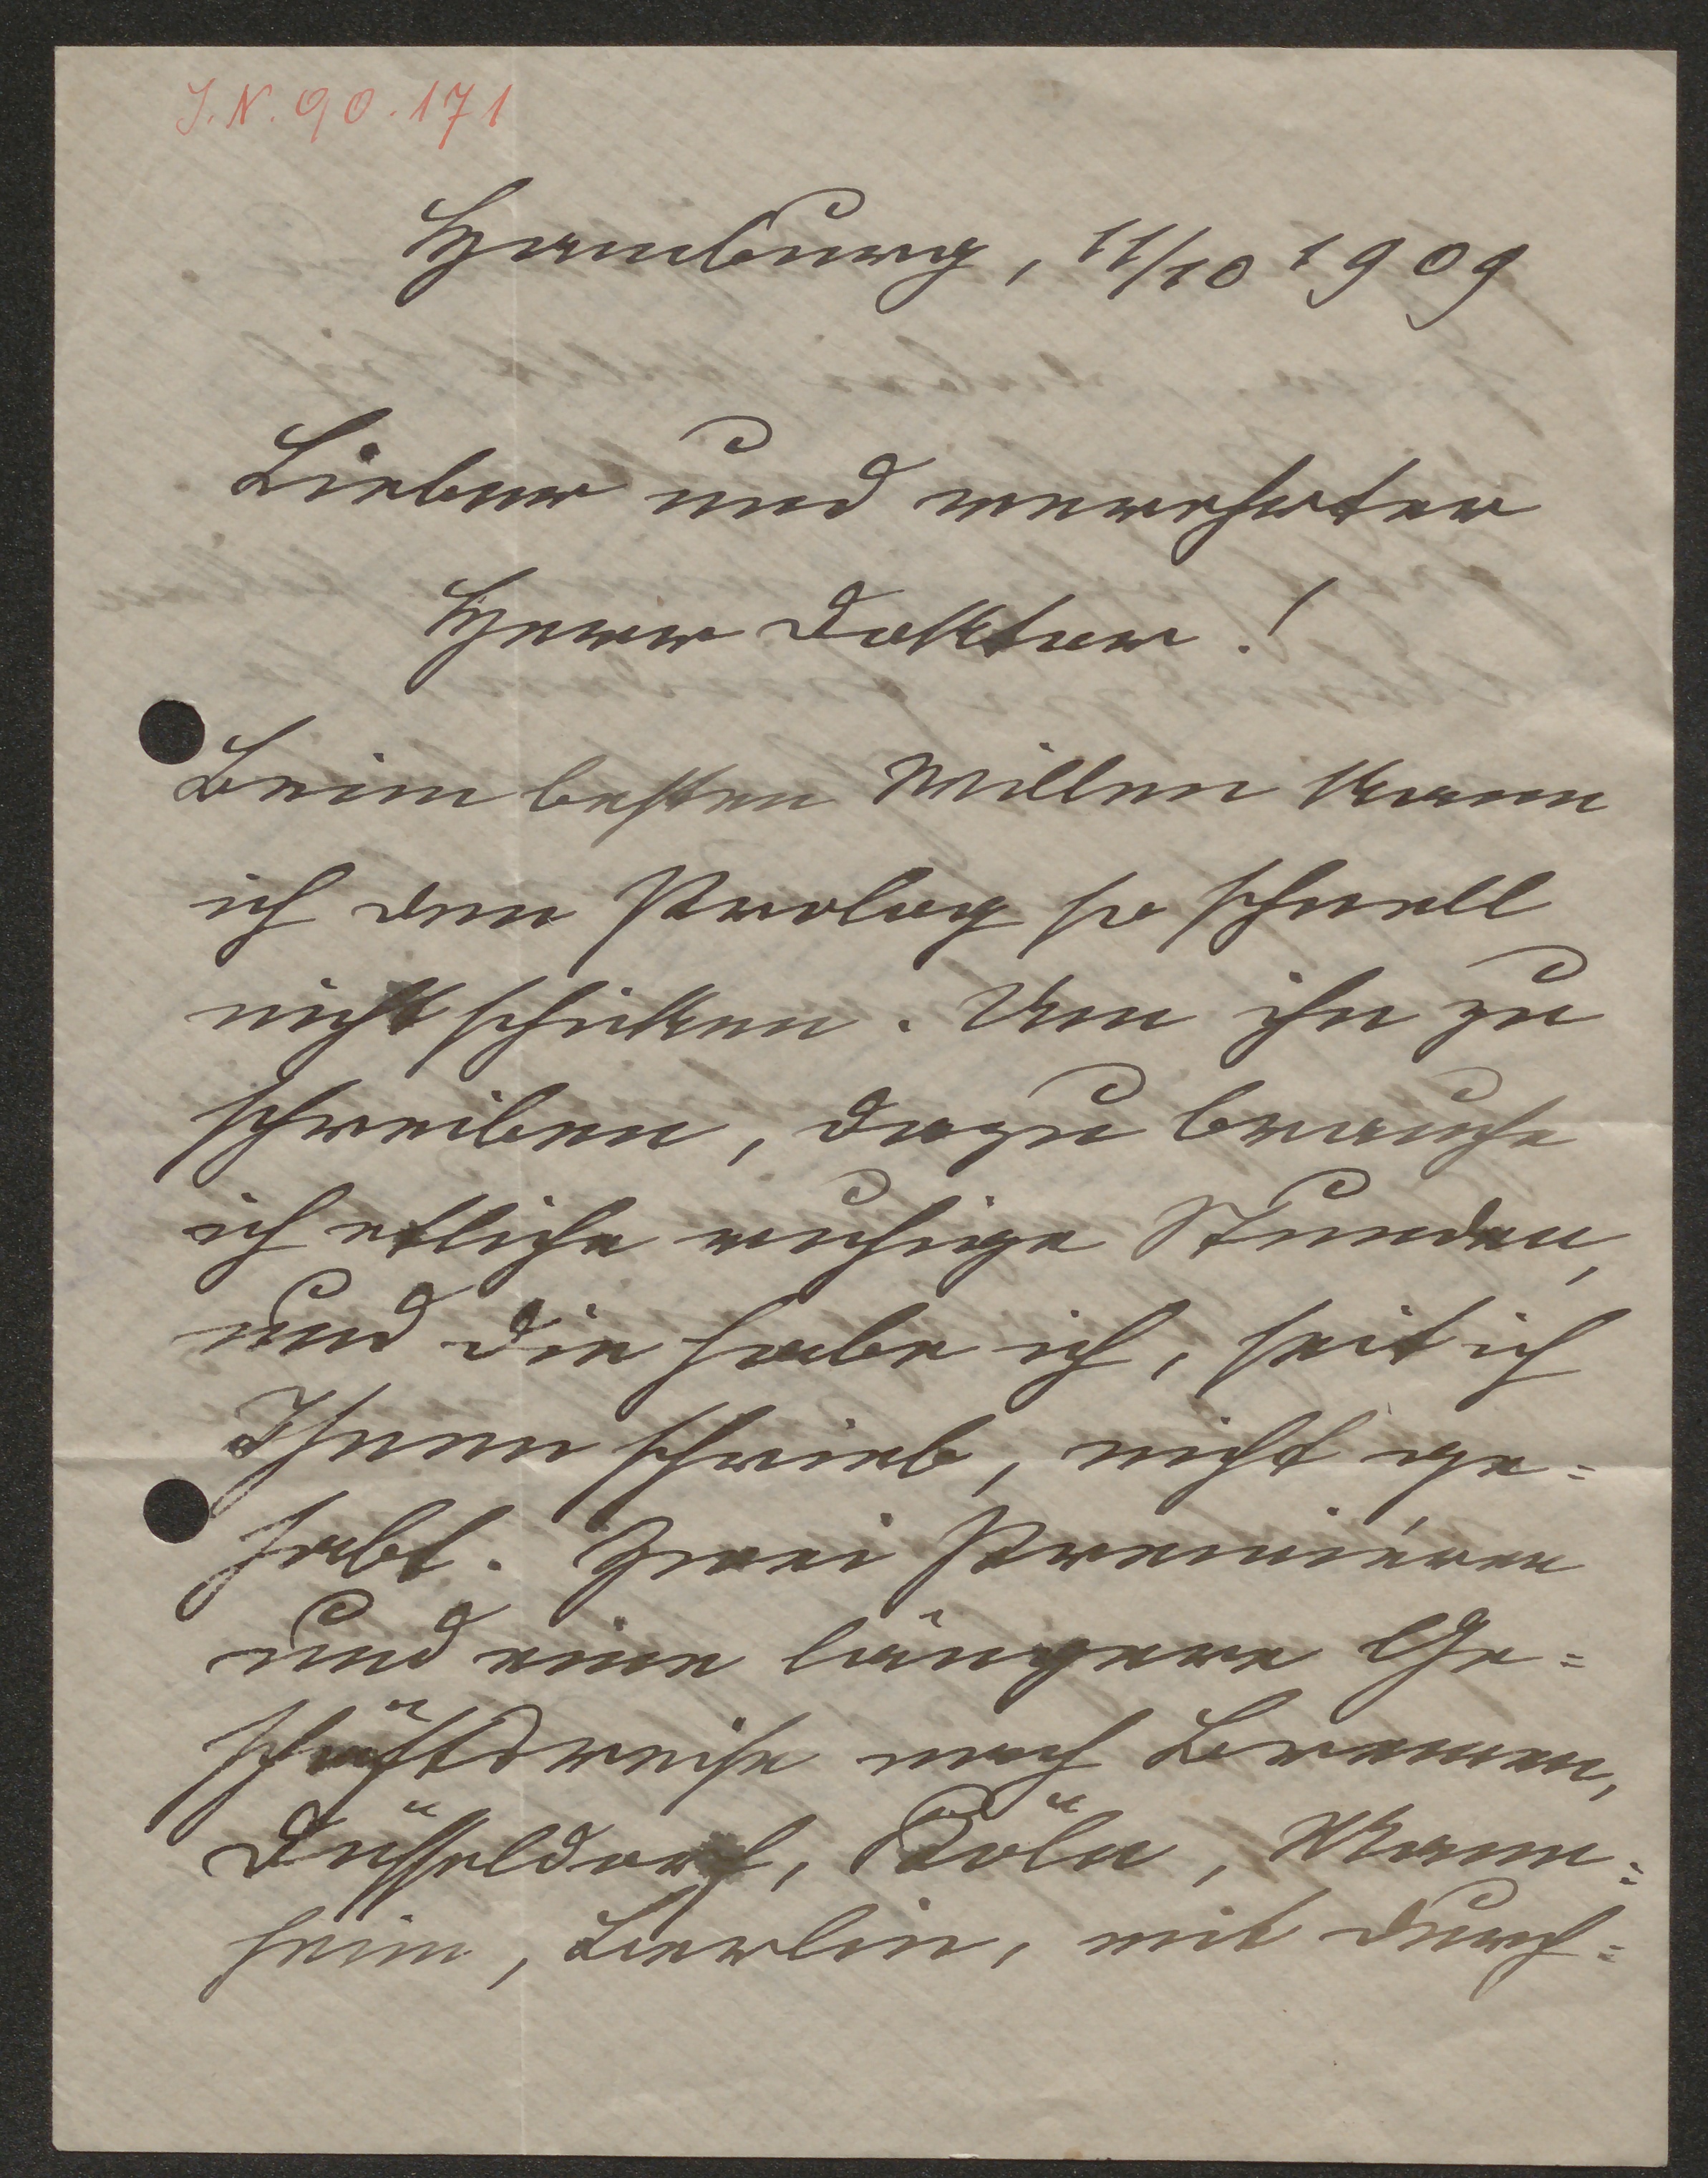 J. N. 90.171
Hamburg, 11/10 1909
Lieber und verehrter
Herr Doktor!
Beim besten Willen kann
ich den Prolog so schnell
nicht schicken. Um ihn zu
schreiben, dazu brauche
ich etliche ruhige Stunden,
und die habe ich, seit ich
Ihnen schrieb, nicht ge=
habt. Zwei Premièren
und eine längere Ge=
schäftsreise nach Bremen,
Düsseldorf, Köln, Mann=
heim, Berlin, mit durch=